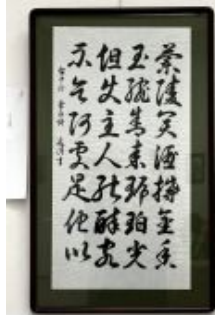 蘭陵美酒鬱金香
玉碗盛來琥珀光
但使主人能醉客
不知何處是他鄉